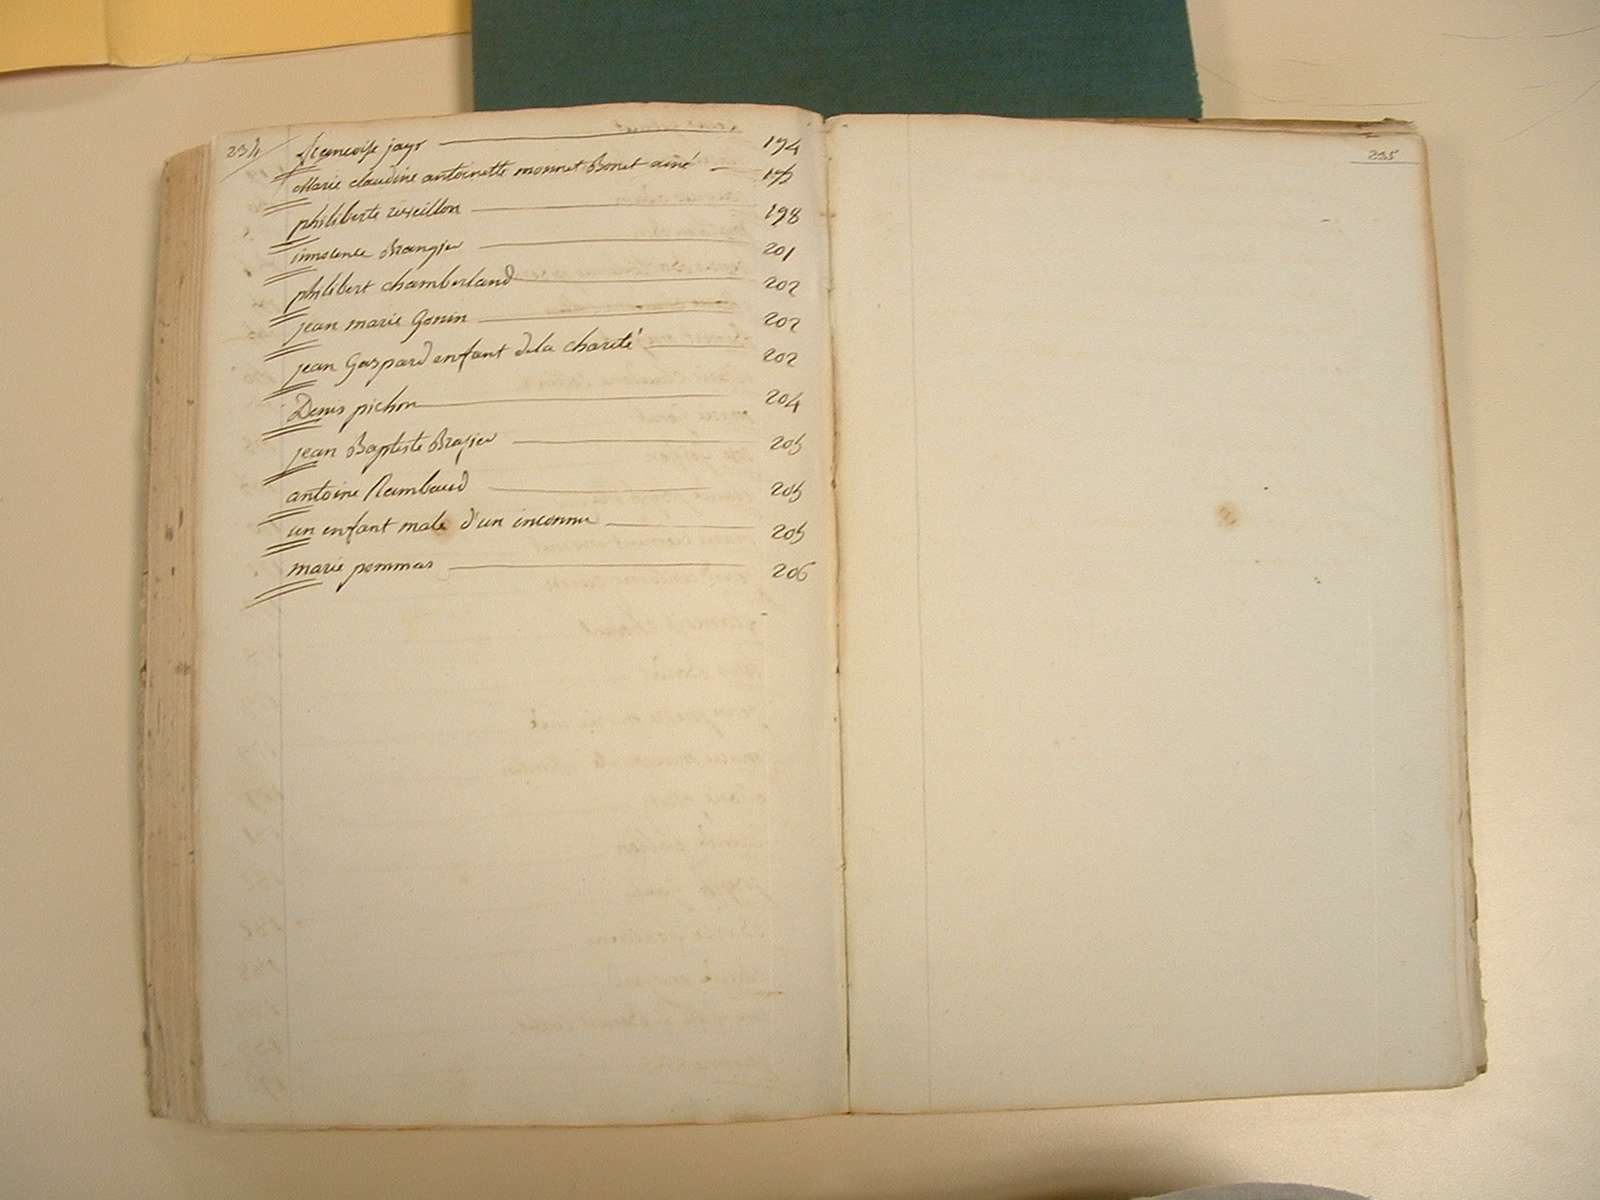 234
francoise jayr 194
Marie claudine antoinette monnet Bonet ainé
philiberte reveillon 198
innocence Brangier 201
philibert chamberland 202
jean marie Gonin 202
jean Gaspard enfant de la charité 202
Denis pichon 204
jean Baptiste Brasier 205
antoine Rambaud 205
un enfant male d'un inconnu 205
marie pommar 206
235